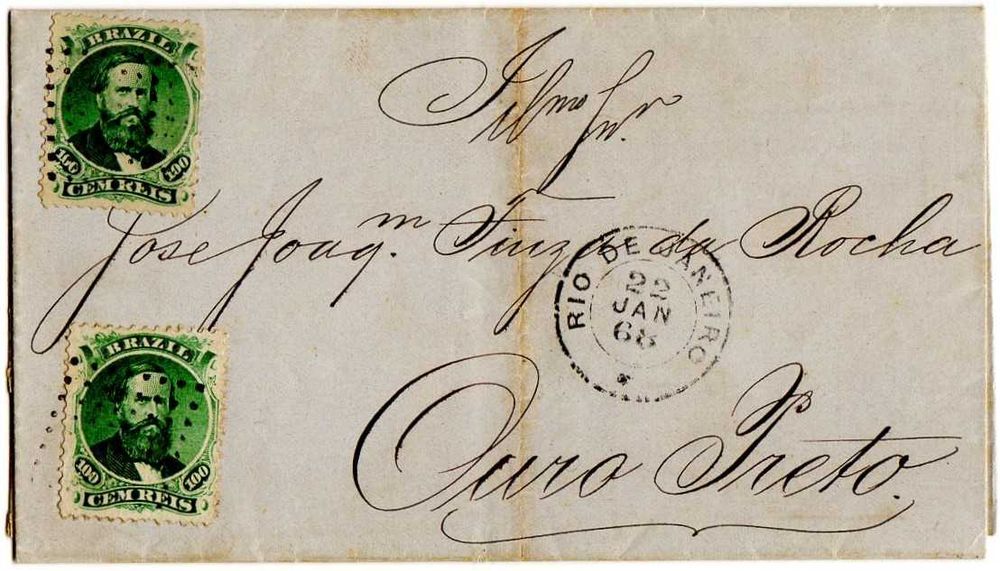 BRAZIL
100 100
CEM REIS
Illmo Snr.
José Joaqm. da Rocha
RIO DE JANEIRO
22
JAN
68
BRAZIL
100 100
CEM REIS
Ouro Preto.